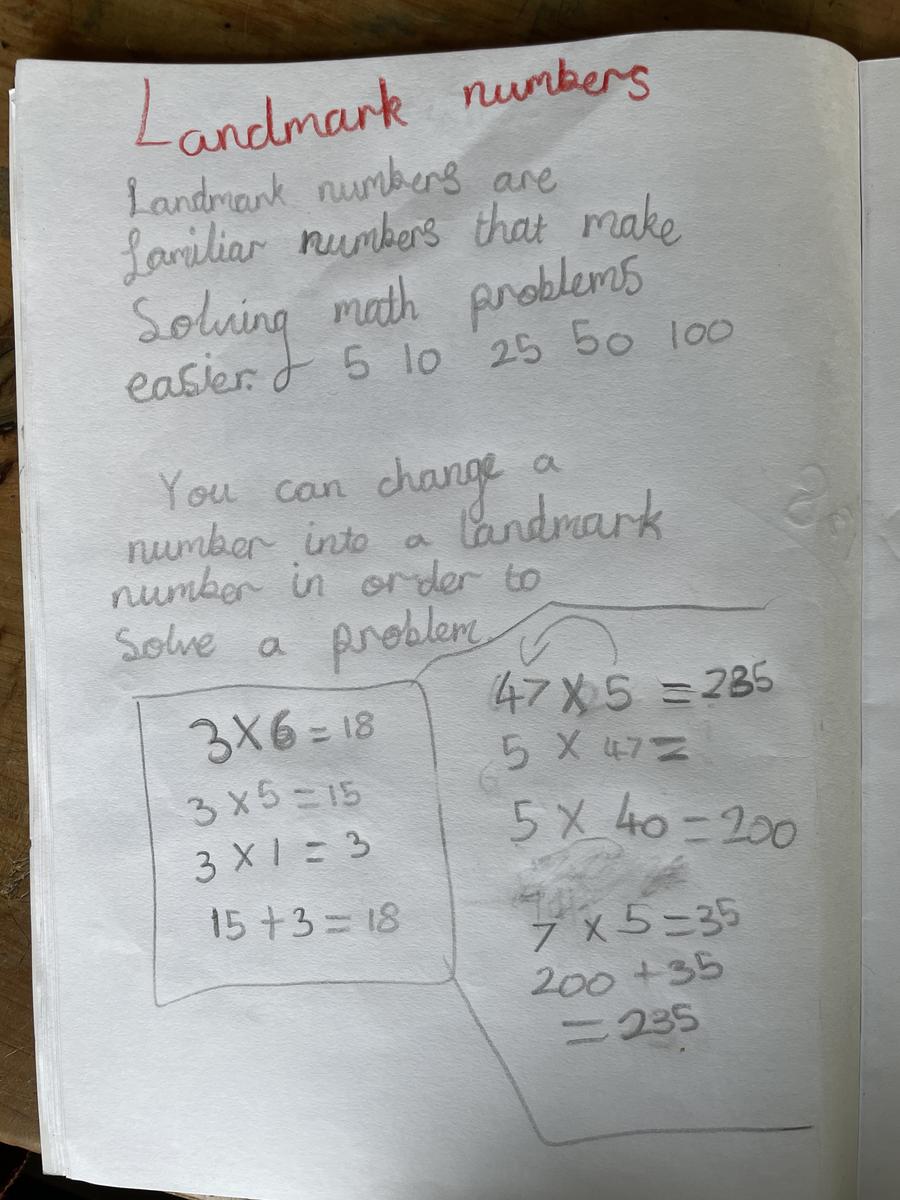 Landmark numbers
Landmark numbers are
familiar numbers that make
Solving math problems
easier. 5 10 25 50 100
You can change a
number into a landmark
number in order to
solve a problem.
3 X 6 = 18
3 X 5 = 15
3 X 1 = 3
15 + 3 = 18
47 X 5 = 235
5 X 47 =
5 X 40 = 200
7 X 5 = 35
200 + 35
= 235